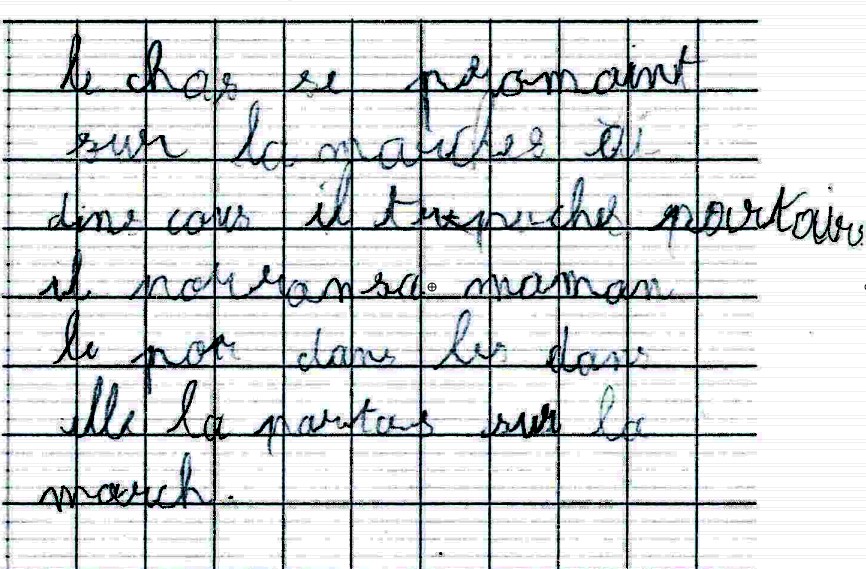 le chas se pyomaint
sur la marches a
dine cous il trepuche pourtair
il pourransa maman
le por dans les dans
elle la portas sur la
march.